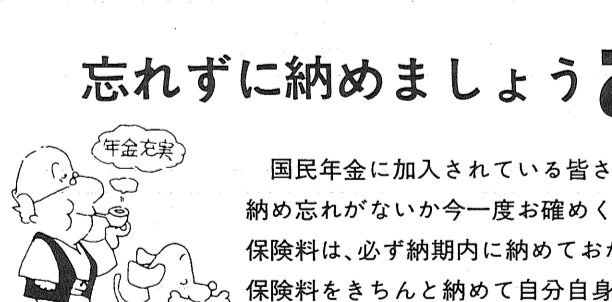 忘れずに納めましょう
年金充実
国民年金に加入されている皆さ
納め忘れがないか今一度お確めく
保険料は、必ず納期内に納めておか
保険料をきちんと納めて自分自身